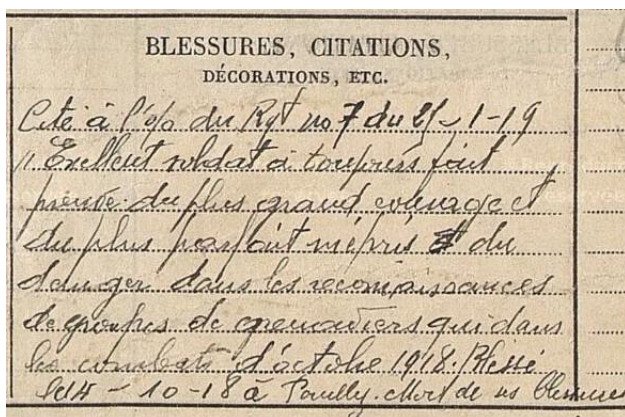 BLESSURES, CITATIONS,
DÉCORATIONS, ETC.
Cité à l'o/o du Rgt no 7 du 25-1-19
"Excellent soldat a toujours fait
preuve du plus grand courage et
du plus parfait mépris du
danger dans les reconnaissances
de groupes de grenadiers qui dans
les combats d'octobre 1918. Blessé
le 14-10-18 à Mort de ses blessures